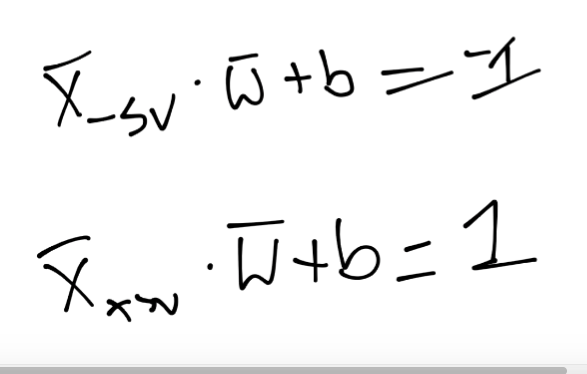 X̄₋SV · w̄ + b = -1
X̄ · w̄ + b = 1